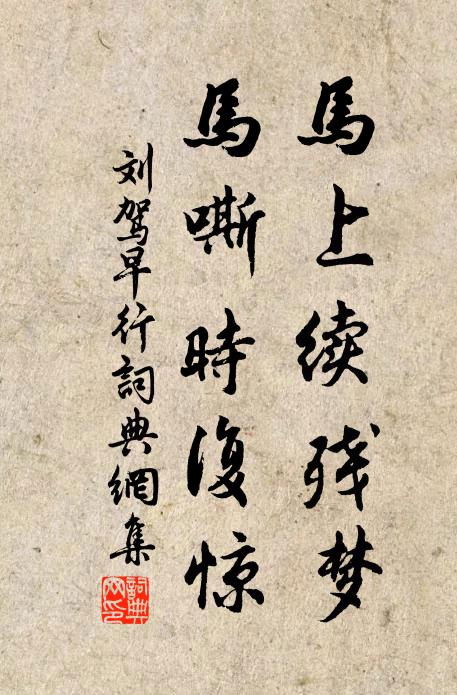 馬上续残梦
馬嘶時復惊
刘驾早行詞典網集
詞典网印